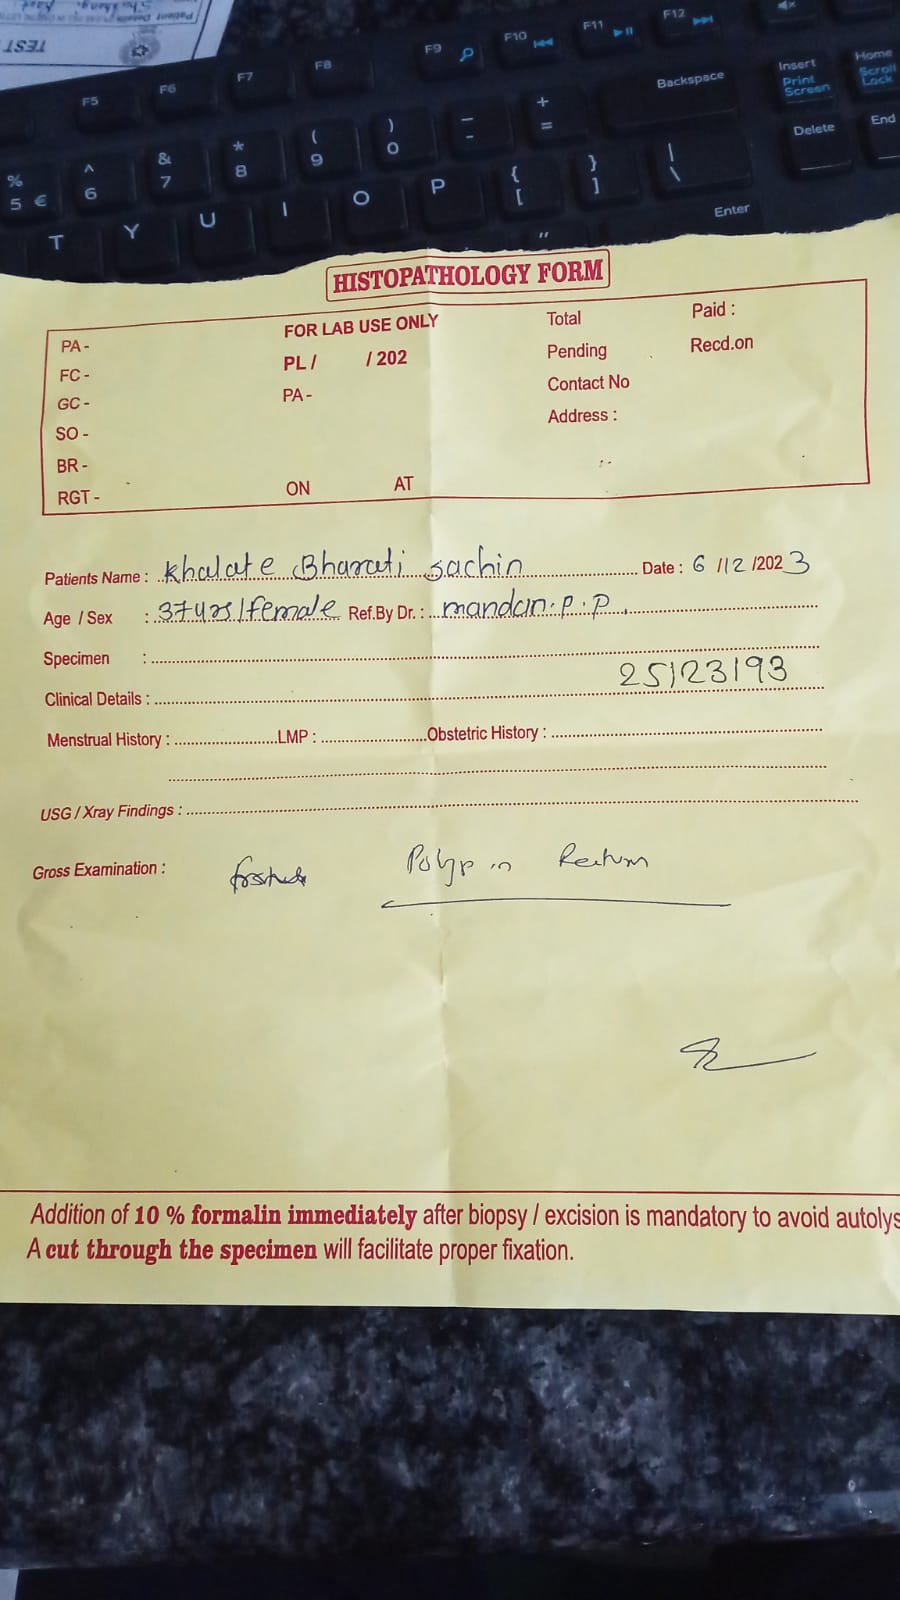 TEST
Patient Details
F5 F6 F7 F8 F9 F10 F11 F12
Backspace
Insert
Print
Screen
Home
Scroll
Lock
Delete
End
% 5 € ^ 6 & 7 * 8 ( 9 ) 0 _ - + =
T Y U I O P { [ } ] | \
Enter
"
HISTOPATHOLOGY FORM
PA -
FC -
GC -
SO -
BR -
RGT -
FOR LAB USE ONLY
PL / / 202
PA -
ON AT
Total Paid :
Pending Recd.on
Contact No
Address :
Patients Name : Khalate Bharati sachin Date : 6 /12 /2023
Age / Sex : 37yrs/female Ref.By Dr. : mandan.p.p.
Specimen :
25123193
Clinical Details :
Menstrual History : LMP : Obstetric History :
USG / Xray Findings :
Gross Examination : Polyp in Rectum
Addition of 10 % formalin immediately after biopsy / excision is mandatory to avoid autolys
A cut through the specimen will facilitate proper fixation.